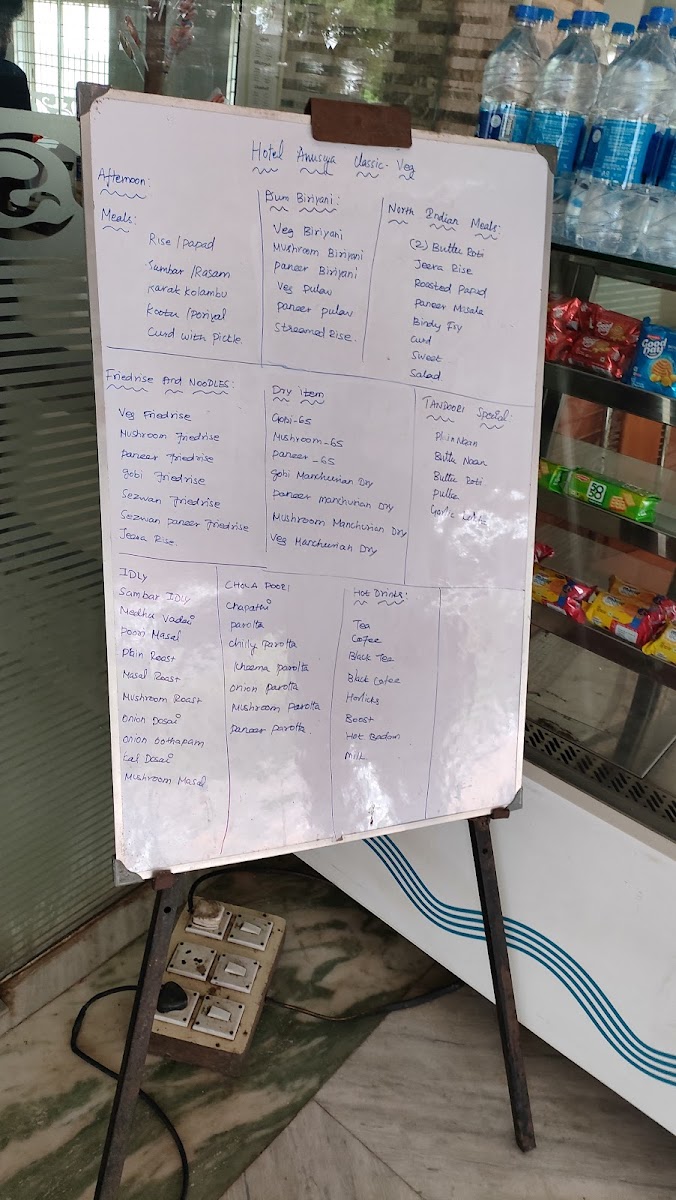 Hotel Anusya Classic-Veg
Afternoon:
Meals:
Rise/papad
Sambar/Rasam
Karak Kolambu
Kootu/Poriyal
Curd with Pickle.
Dum Biriyani:
Veg Biriyani
Mushroom Biriyani
paneer Biriyani
Veg pulaw
paneer pulaw
Streamed Rise.
North Indian Meals:
(2) Buttu Roti
Jeera Rise
Roasted Papad
Paneer Masala
Bindy Fry
Curd
Sweet
Salad
Friedrise And NOODLES:
Veg Friedrise
Mushroom Friedrise
paneer Friedrise
gobi Friedrise
Sezwan Friedrise
Sezwan paneer Friedrise
Jeera Rise.
Dry item
Gobi-65
Mushroom-65
paneer-65
gobi Manchurian Dry
paneer manchurian Dry
Mushroom Manchurian Dry
Veg Manchurian Dry
TANDOORI Special:
Plain Naan
Buttu Naan
Buttu Roti
pulka
Garlic
IDLY
Sambar IDLY
Medhu Vadai
Poori Masal
Plain Roast
Masal Roast
Mushroom Roast
Onion Dosai
Onion Oothapam
Kal Dosai
Mushroom Masal
CHOLA POORI
Chapathi
parotta
chilly parotta
kheema parotta
onion parotta
Mushroom parotta
paneer parotta.
Hot Drinks:
Tea
Cofee
Black Tea
Black Cofee
Horlicks
Boost
Hot Badam
Milk
Good
day
50
50